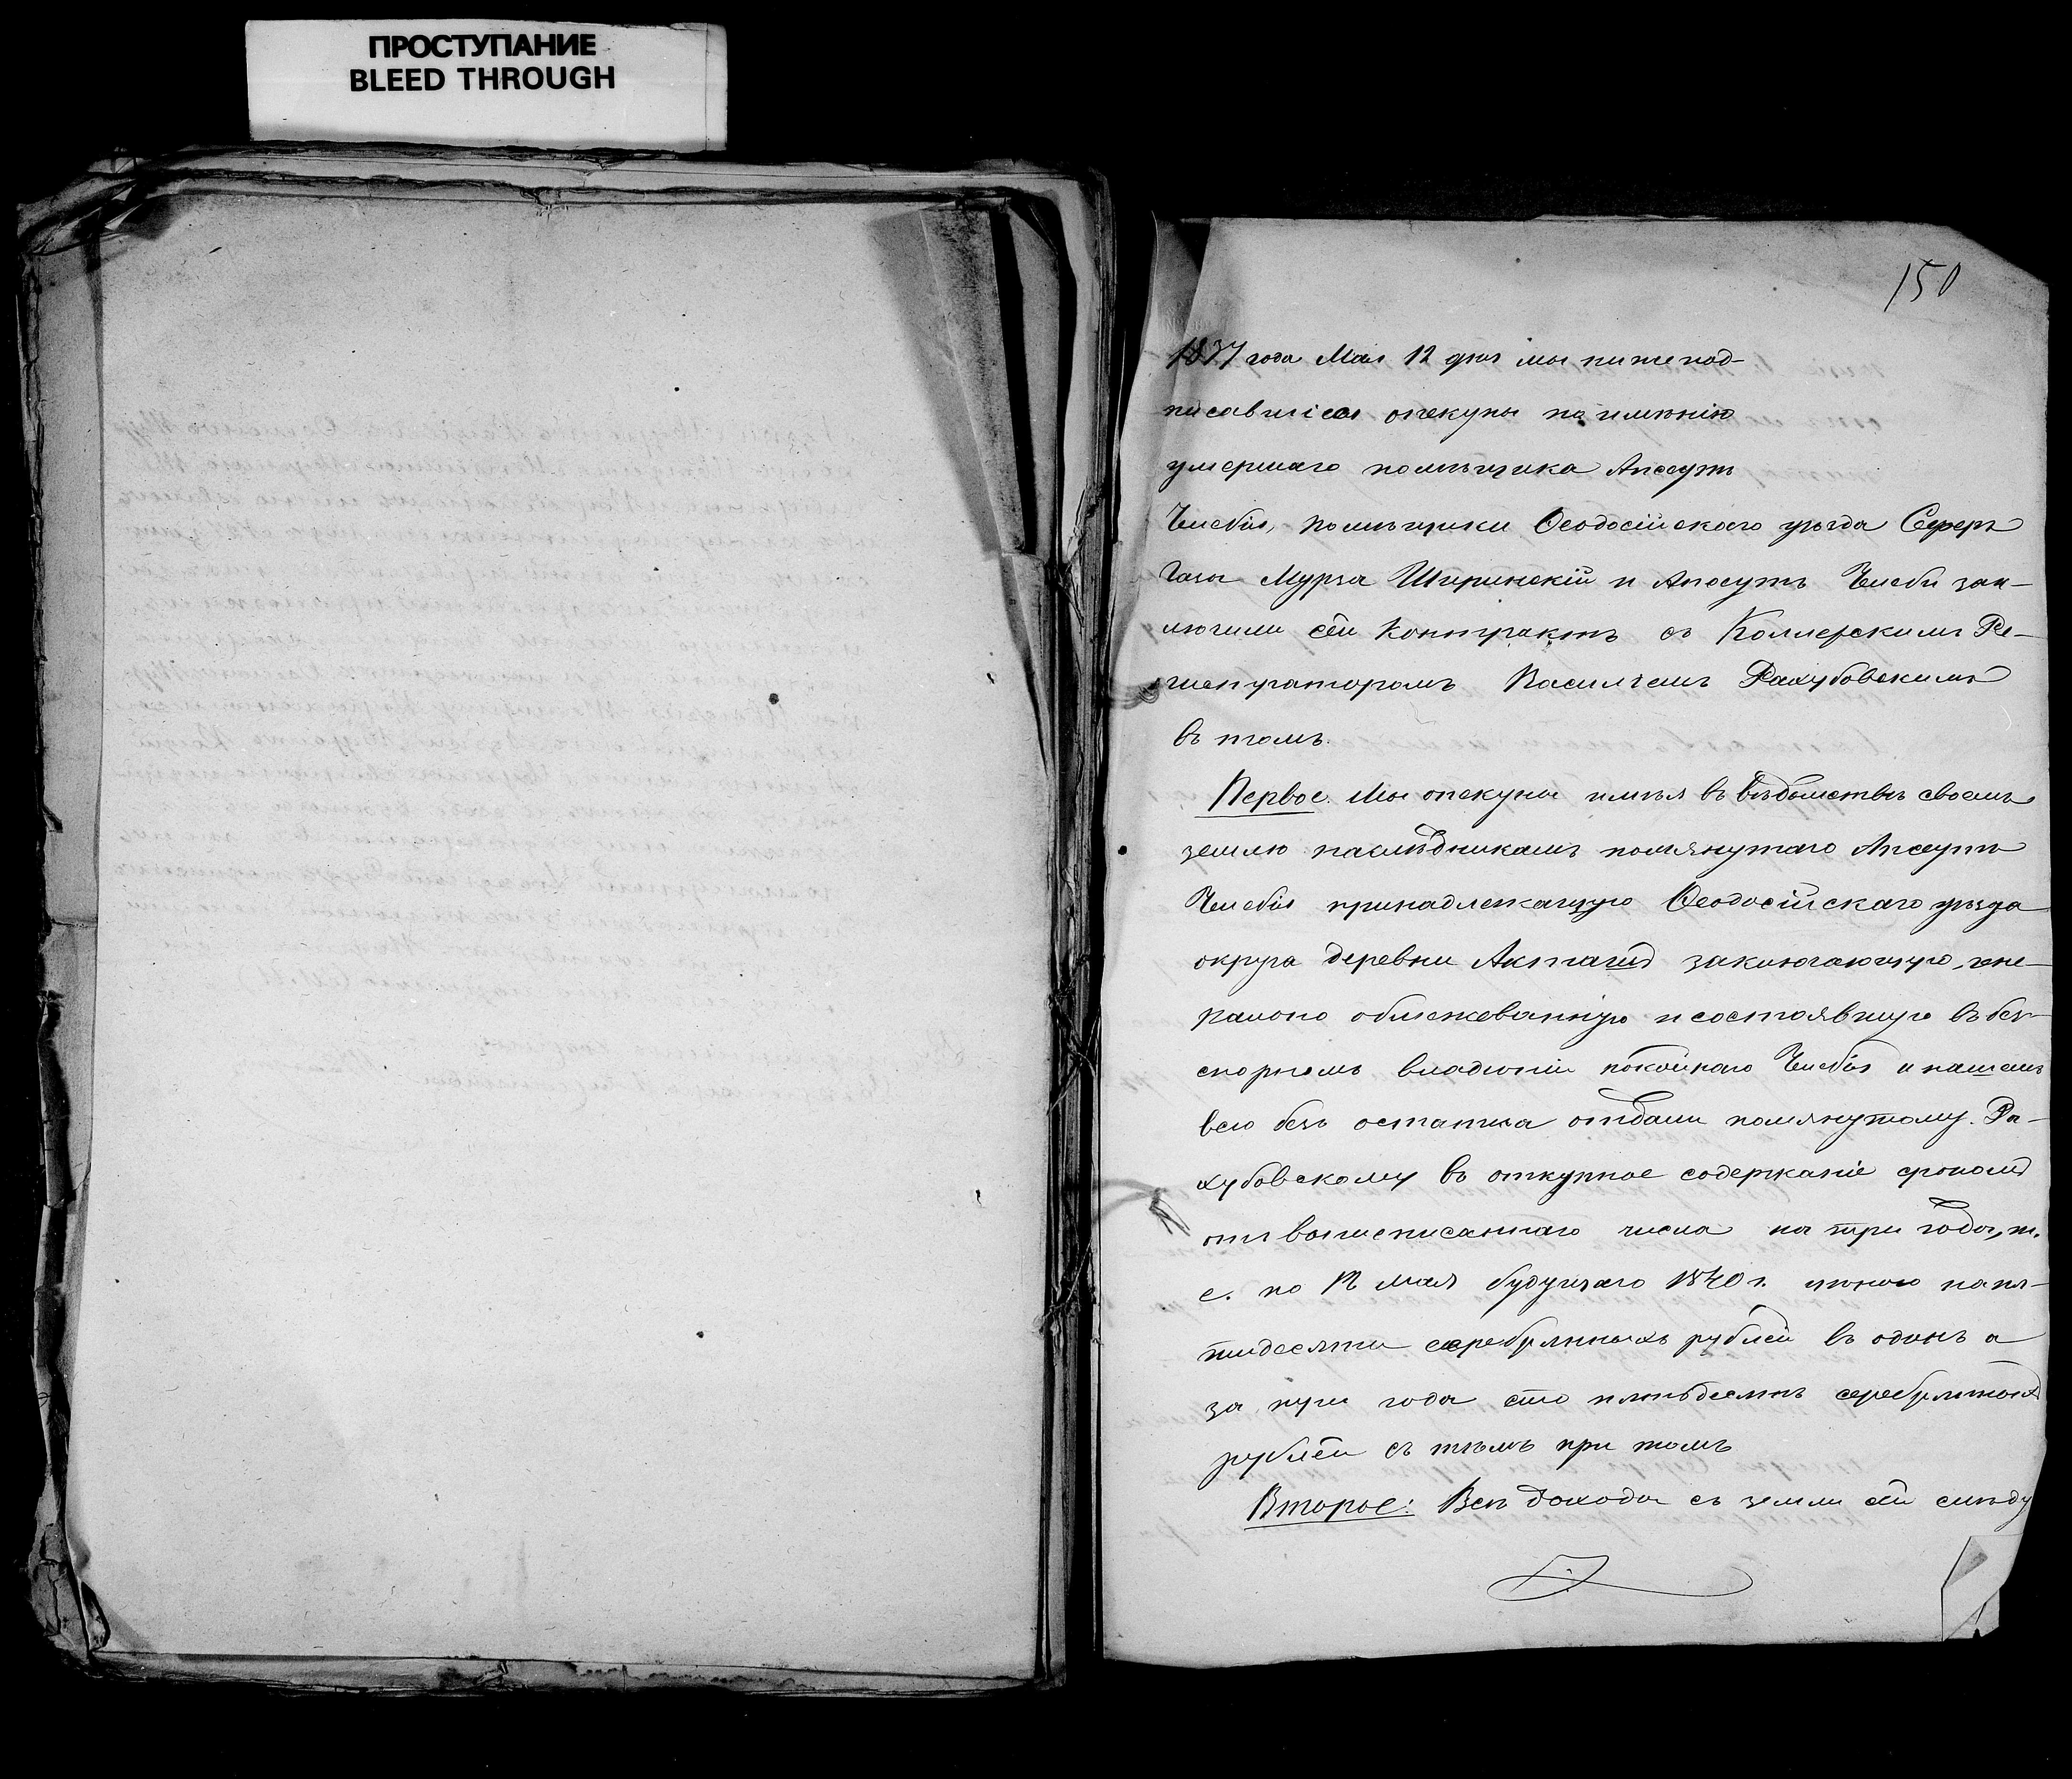 ПРОСТУПАНИЕ
BLEED THROUGH
150
1837 года Мая 12 дня мы нижепод-
писавшіеся опекуны по имѣнію
умершаго помѣщика Апсеутъ
Челебія, помѣщики Ѳеодосійскаго уѣзда Сеферъ
Газы Мурза Ширинскій и Апсеутъ Челеби зак-
лючили сей контрактъ съ Коллежскимъ Ре-
гистраторомъ Васильемъ Рахубовскимъ
въ томъ.
Первое. Мы опекуны имѣя въ вѣдомствѣ своемъ
землю наслѣдникамъ помянутаго Апсеутъ
Челебія принадлежащую Ѳеодосійскаго уѣзда
округа деревни Акташъ заключающую, гене-
рально обмежеванную и состоявшую въ без-
спорномъ владѣніи покойнаго Челебія и нашемъ
всю безъ остатка отдали помянутому Ра-
хубовскому въ откупное содержаніе срокомъ
отъ вышеписаннаго числа на три года, т.
е. по 12 мая будущаго 1840 г. цѣною по пя-
тидесяти серебряныхъ рублей въ одинъ а
за три года сто пятьдесятъ серебряныхъ
рублей съ тѣмъ при томъ
Второе: Всѣ доходы съ земли сей слѣду